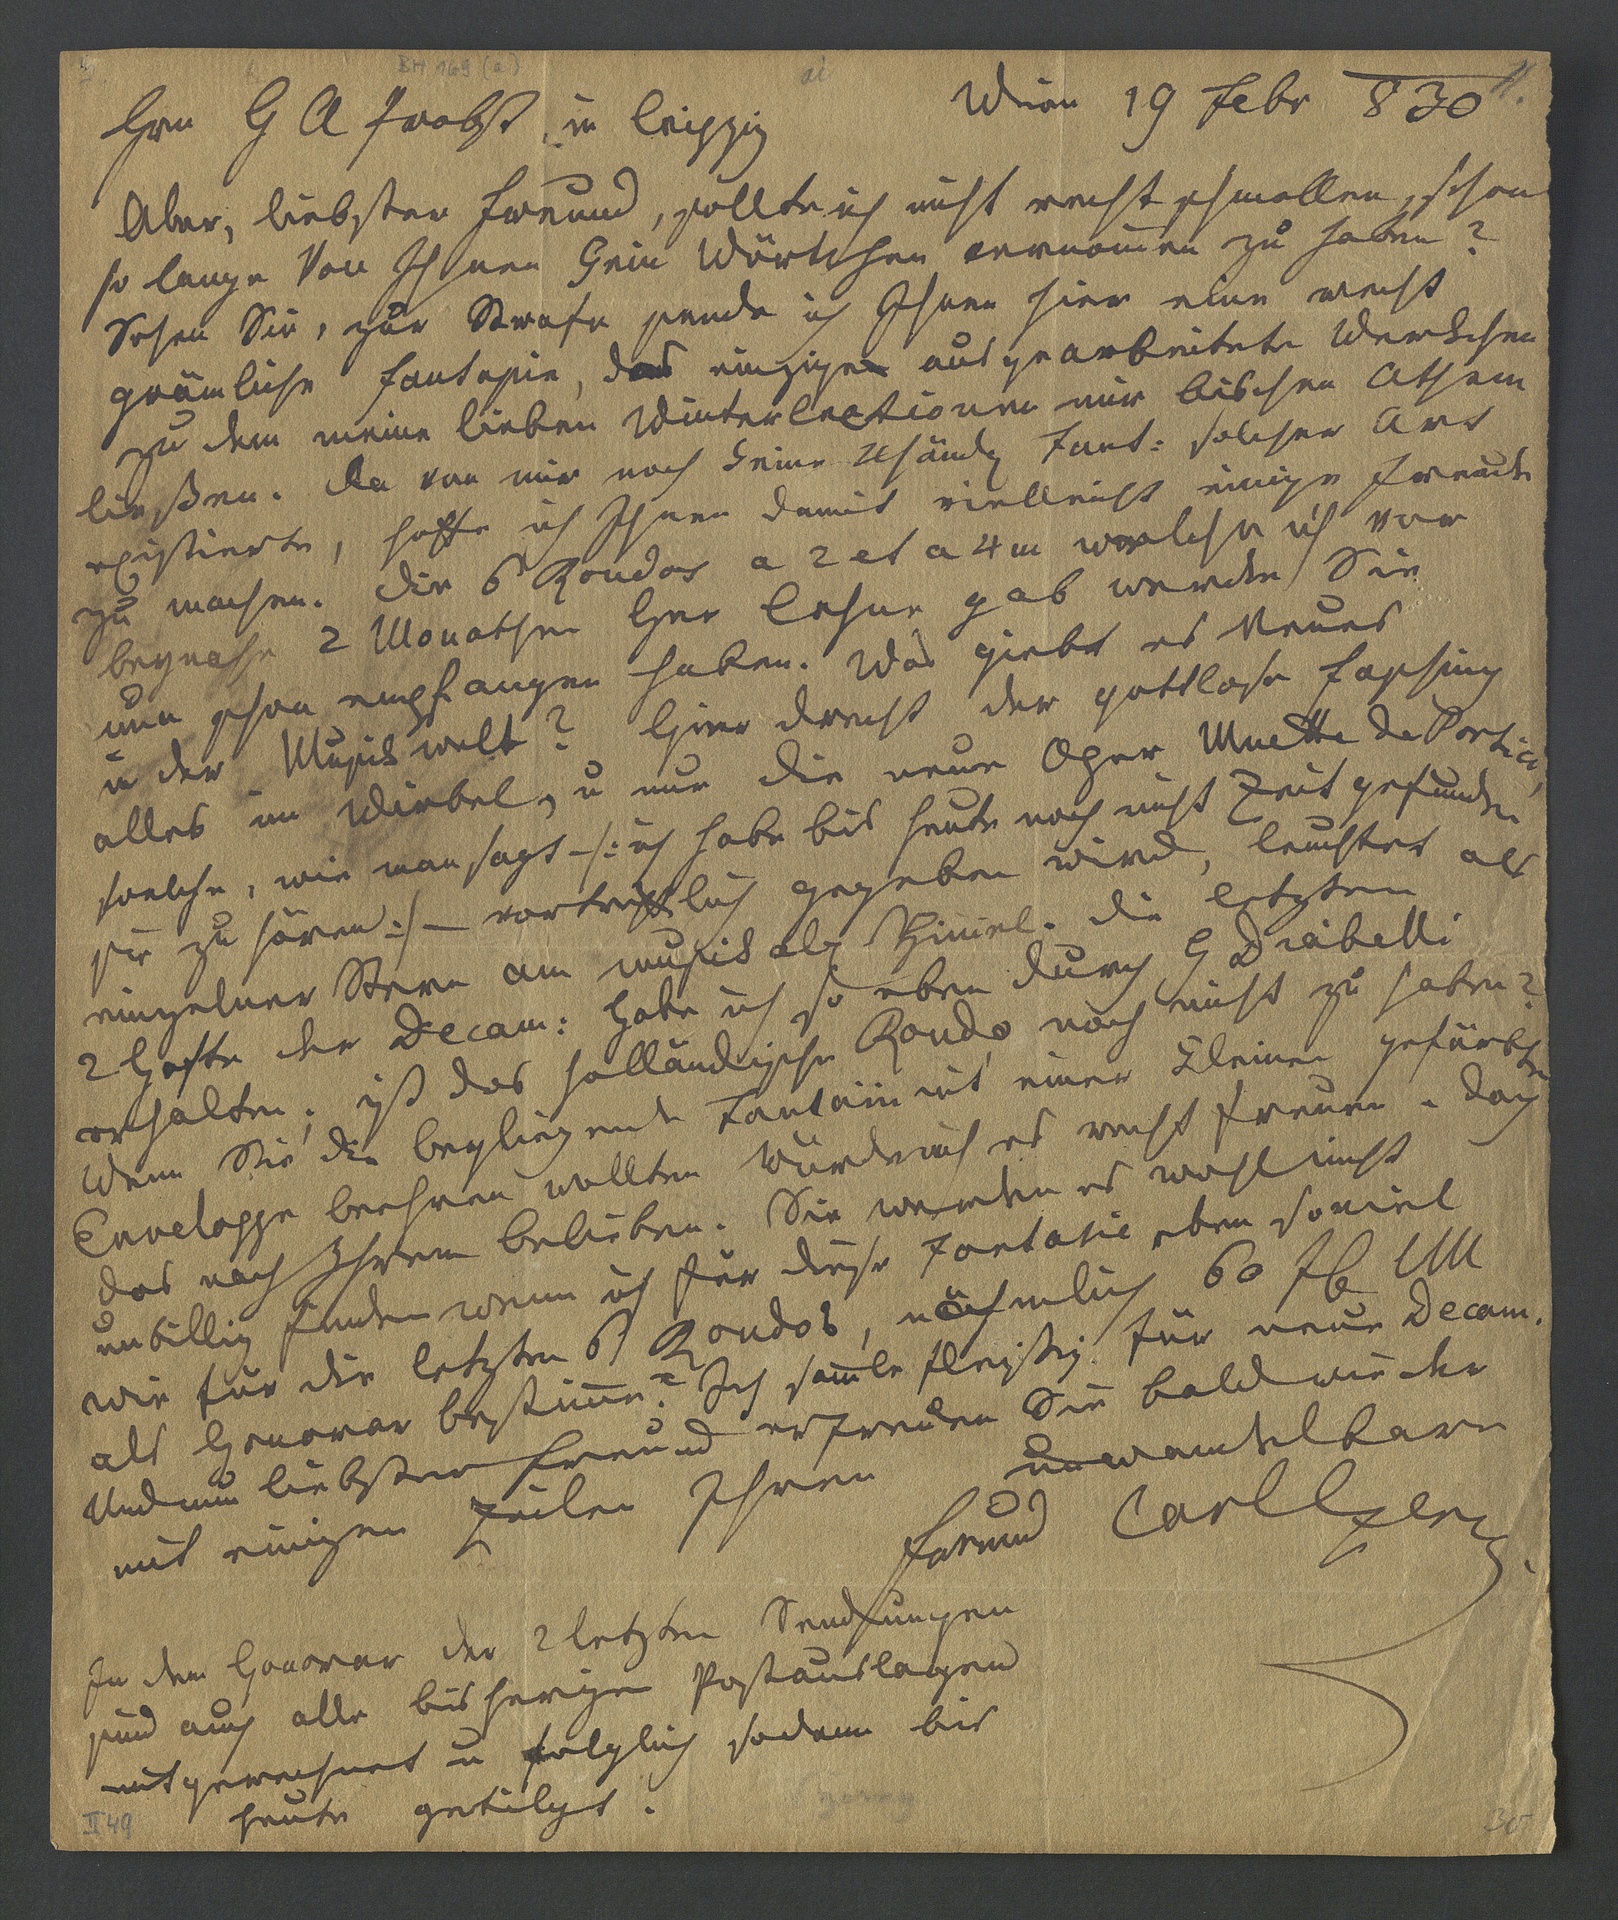 BH 169 (a)
Wien 19 Febr 830
Hrn G A Probst in Leipzig
Aber, liebster Freund, sollte ich nicht recht schmollen, schon
so lange von Ihnen kein Wörtchen vernom̅en zu haben?
Sehen Sie, zur Strafe sende ich Ihnen hier eine recht
grämliche Fantasie, das einzige ausgearbeitete Werkchen
zu dem meine lieben Winterlectionen mir bischen Athem
ließen. Da von mir noch keine 4händg Fant: solcher Art
existierte, hoffe ich Ihnen damit vielleicht einige Freude
zu machen. Die 6 Rondos a 2 et a 4 m welche ich vor
beynahe 2 Monathen Her Lehne gab werden Sie
nun schon empfangen haben. Was giebt es Neues
in der Musikwelt? Hier dreht der gottlose Fasching
alles im Wirbel, u nur die neue Oper Muette de Portici,
welche, wie man sagt –/: ich habe bis heute noch nicht Zeit gefunden
sie zu hören :/– vortrefflich gegeben wird, leuchtet als
einzelner Stern am musikalg Him̅el. Die letzten
2 Hefte der Decam: habe ich so eben durch H Diabelli
erhalten; ist das holländische Rondo noch nicht zu haben?
Wenn Sie die beyliegende Fantasie mit einer kleinen gefärbten
Enveloppe beehren wollten würde mich es recht freuen. doch
das nach Ihrem Belieben. Sie werden es wohl nicht
unbillig finden wenn ich für diese Fantasie eben soviel
wie für die letzten 6 Rondos, nähmlich 60 fl CM
als Honorar bestim̅e? Ich sam̅le fleissig für neue Decam.
Und nun liebster Freund erfreuen Sie bald wieder
mit einigen Zeilen Ihren unwandelbaren
Freund Carl Czerny.
In dem Honorar der 2 letzten Sendungen
sind auch alle bisherigen Postauslagen
mitgerechnet u folglich sodann bis
heute getilgt.
II 49